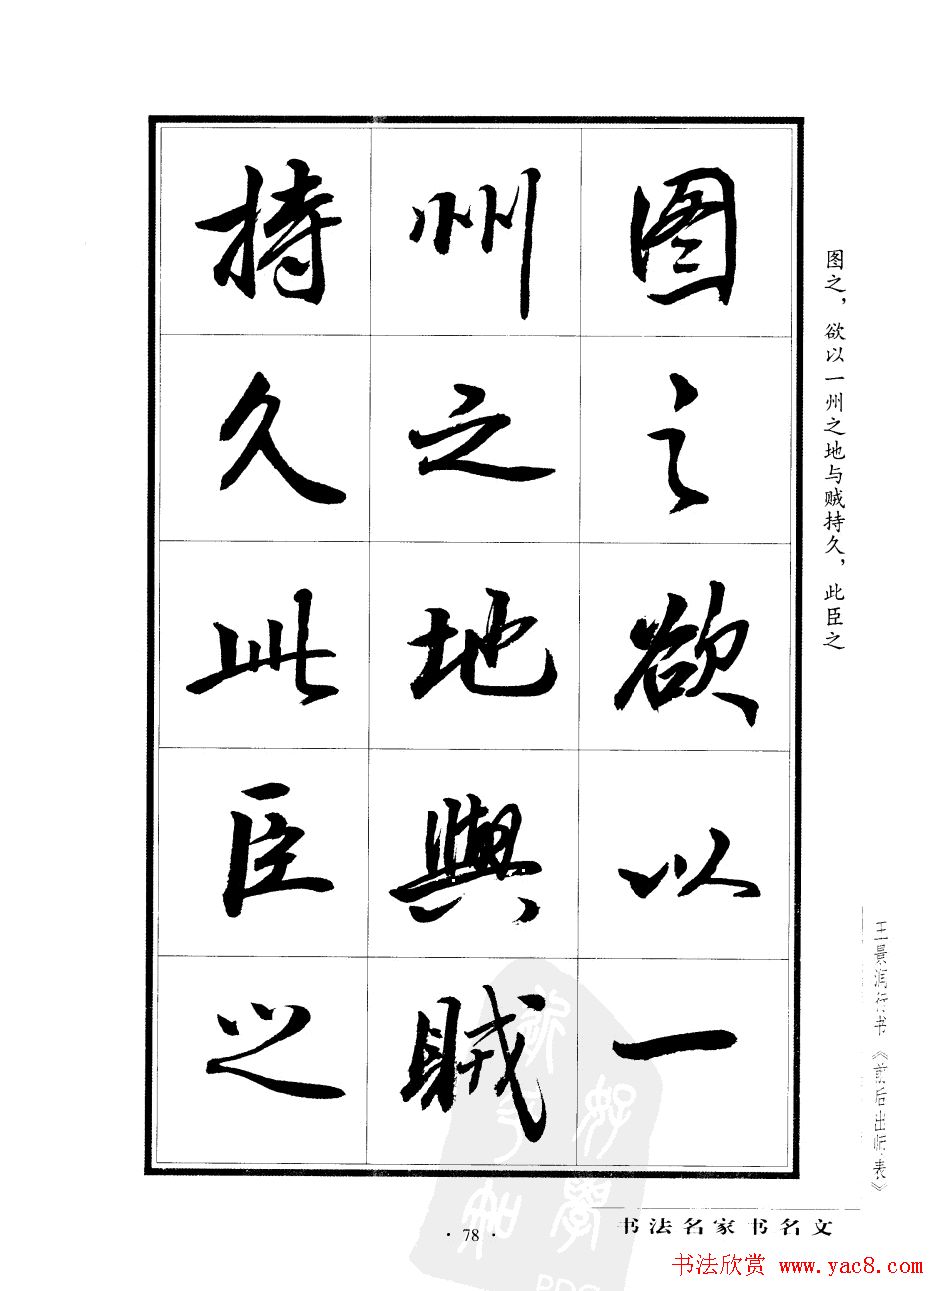 图之欲以一
州之地與贼
持久此臣之
图之，欲以一州之地与贼持久，此臣之
王景润行书《前后出师表》
书法名家书名文
·78·
书法欣赏 www.yac8.com